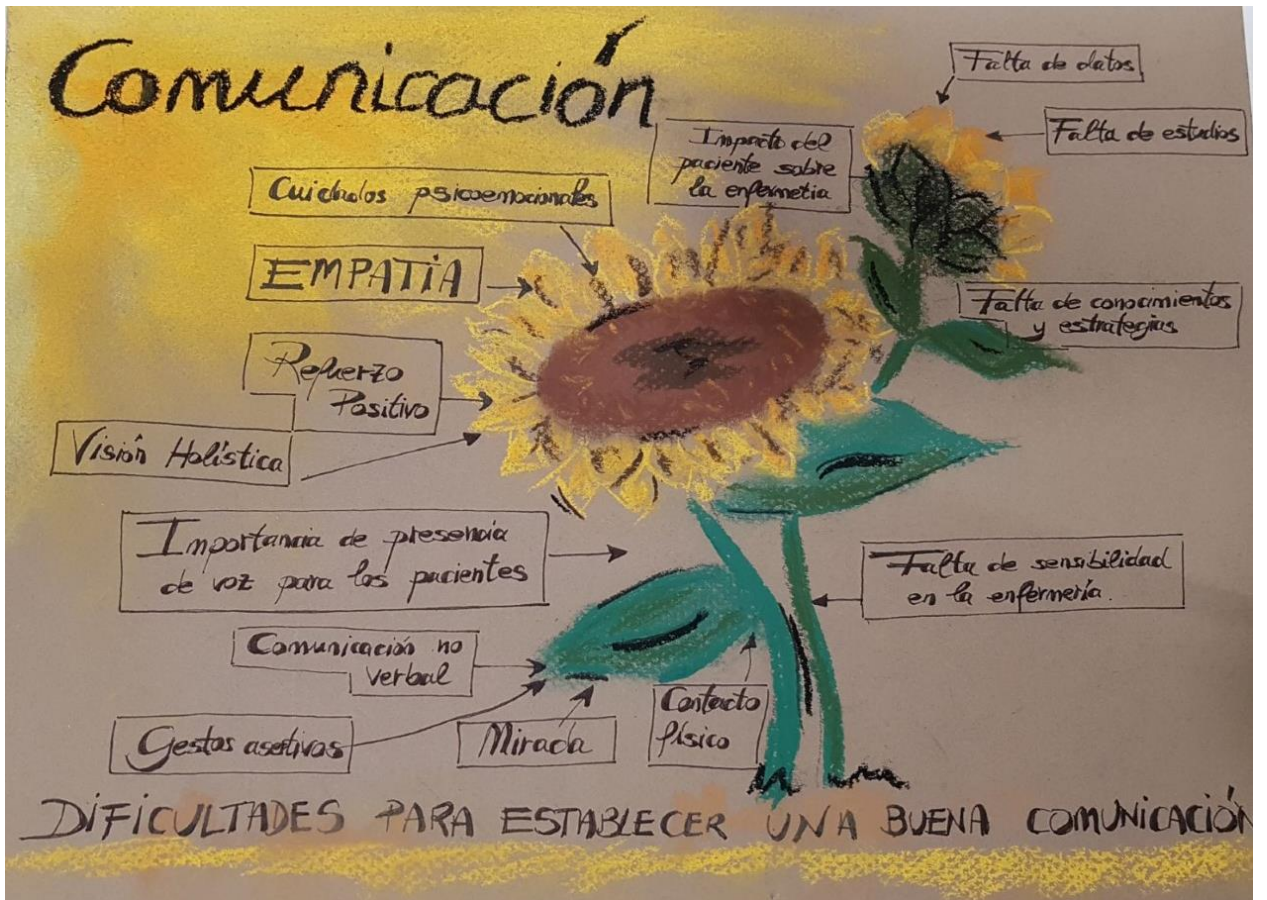 Comunicación
Falta de datos
Falta de estudios
Impacto del
paciente sobre
la enfermetia
Cuidados psicoemocionales
EMPATÍA
Falta de conocimientos
y estrategias
Refuerzo
Positivo
Visión Holística
Importancia de presencia
de voz para los pacientes
Falta de sensibilidad
en la enfermería.
Comunicación no
verbal
Contacto
físico
Gestos asertivos
Mirada
DIFICULTADES PARA ESTABLECER UNA BUENA COMUNICACIÓN